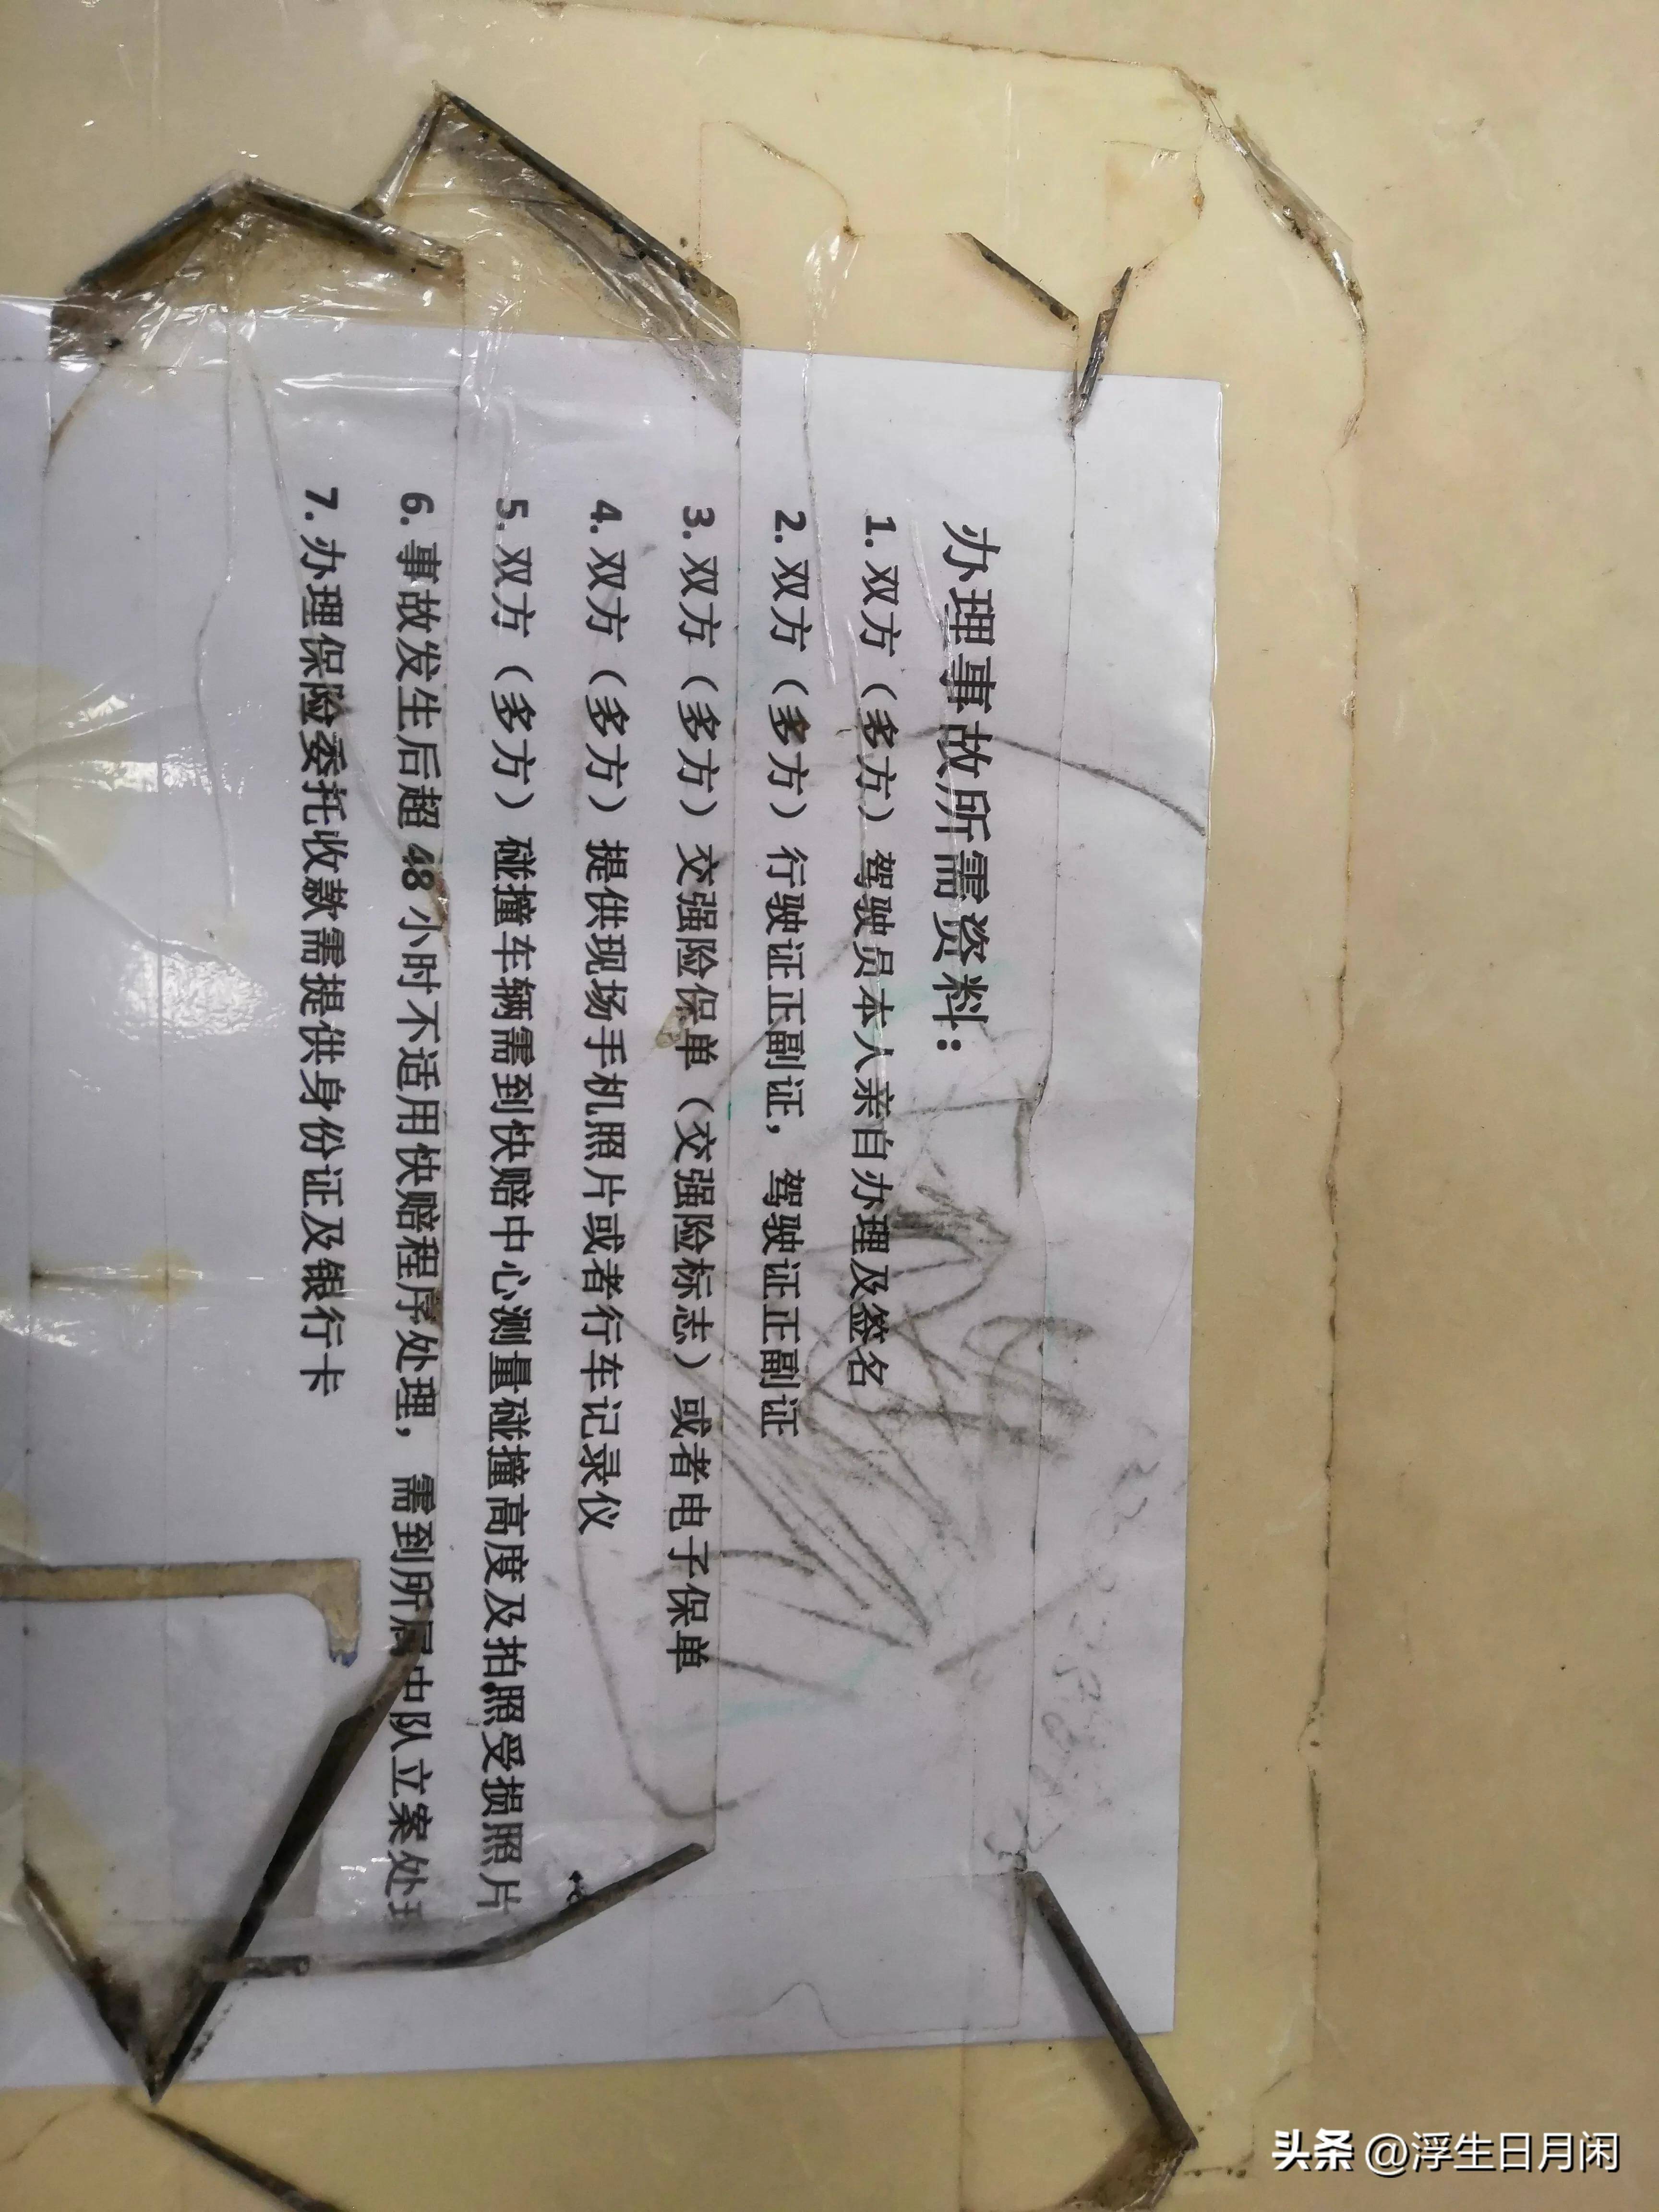 办理事故所需资料：
1. 双方（多方）驾驶员本人亲自办理及签名
2. 双方（多方）行驶证正副证，驾驶证正副证
3. 双方（多方）交强险保单（交强险标志）或者电子保单
4. 双方（多方）提供现场手机照片或者行车记录仪
5. 双方（多方）碰撞车辆需到快赔中心测量碰撞高度及拍照受损照片
6. 事故发生后超 48 小时不适用快赔程序处理，需到所属中队立案处理
7. 办理保险委托收款需提供身份证及银行卡
头条 @浮生日月闲